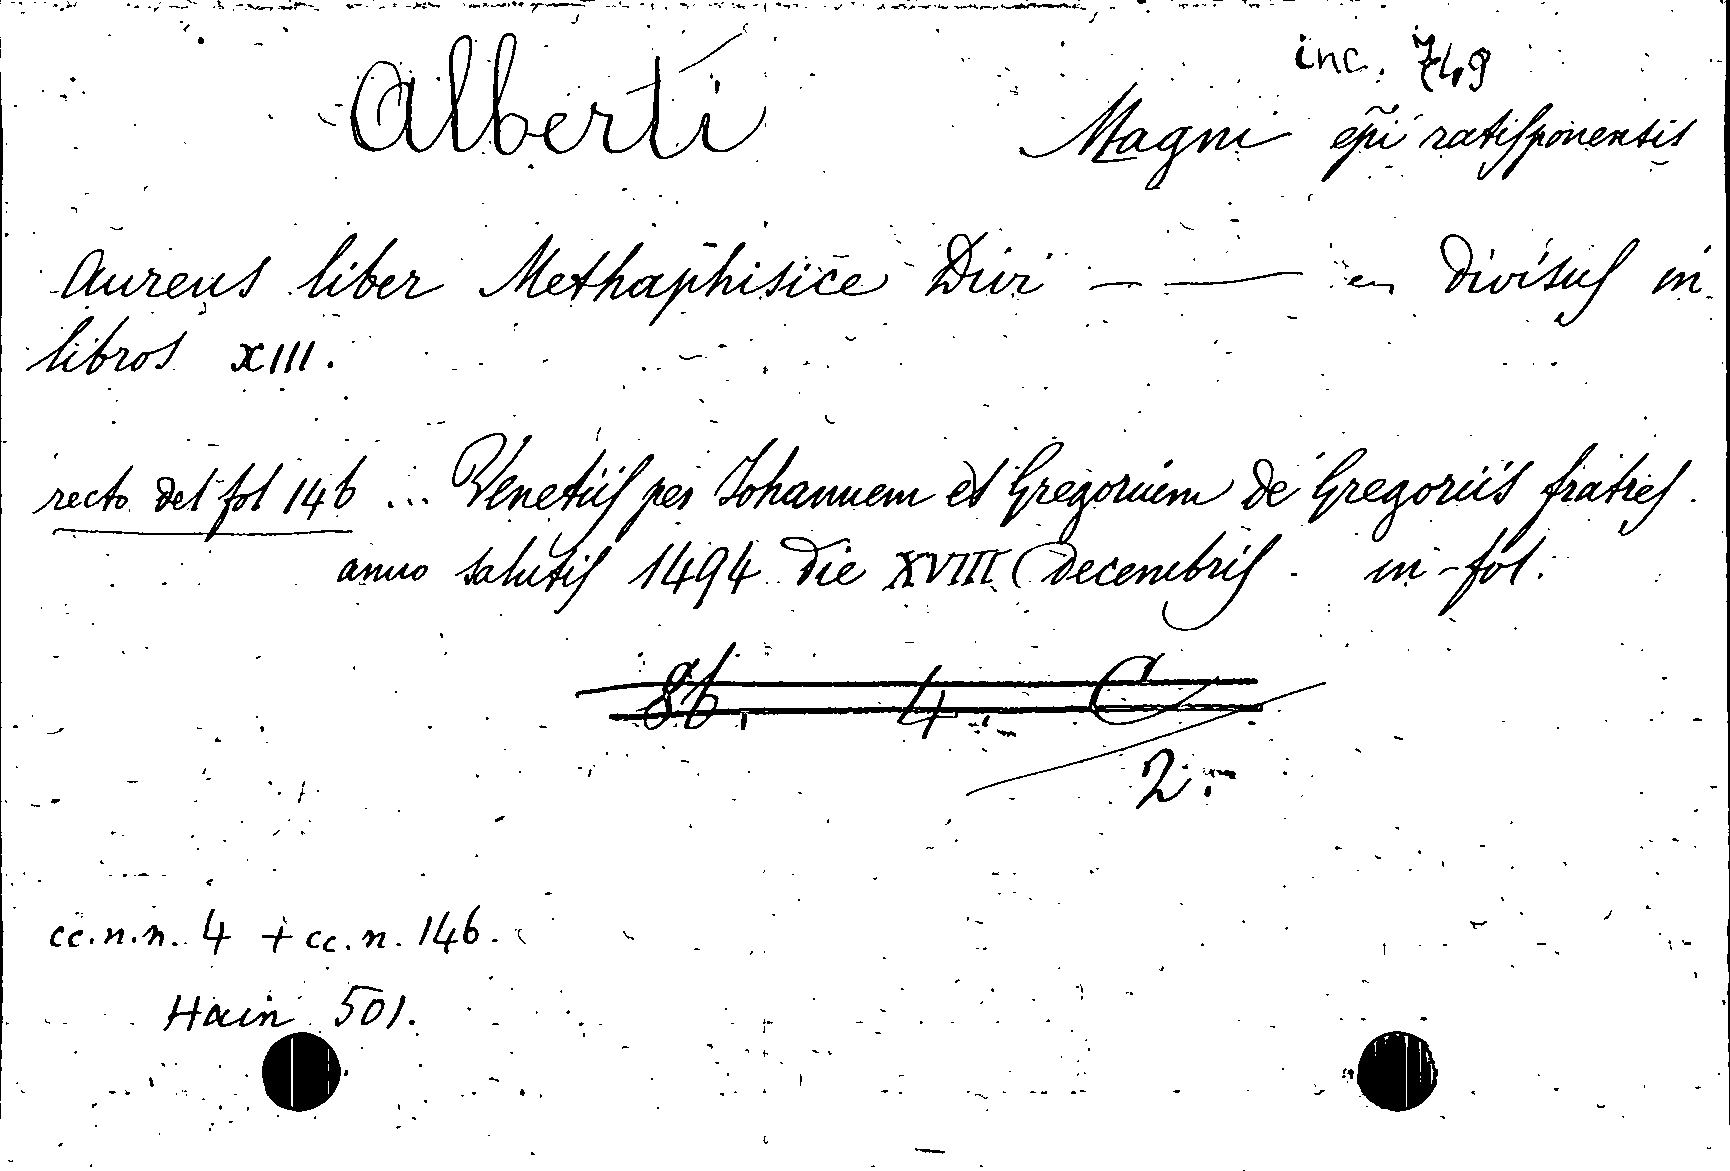 inc. 749
Alberti Magni ep̃i ratisponensis
Aureus liber Methaphisice Divi —— divisus in
libros XIII.
recto del fol 146 ... Venetiis per Johannem et Gregorium de Gregoriis fratres.
anno salutis 1494 die XVIII decembris. in-fol.
86. 4. C
2.
cc.n.n. 4 + cc.n. 146.
Hain 501.